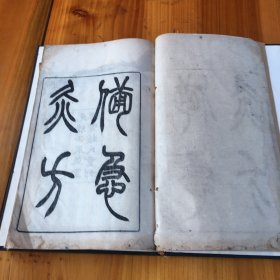 備急
灸方